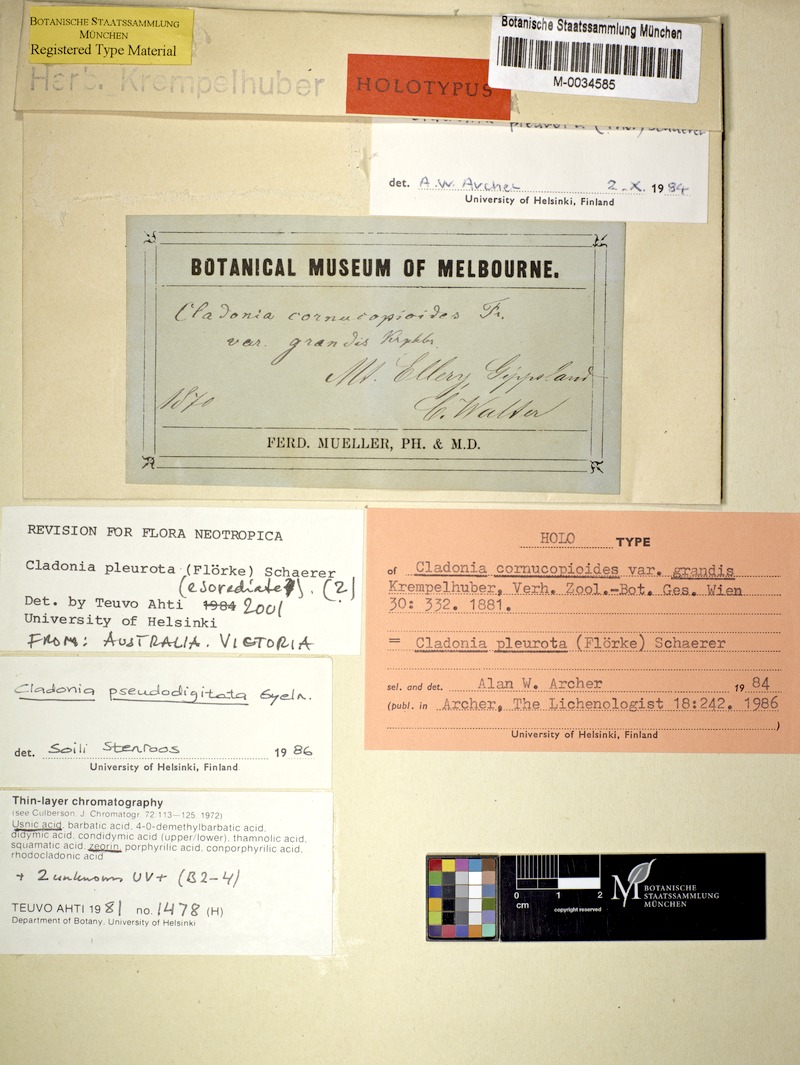 BOTANISCHE STAATSSAMMLUNG
MÜNCHEN
Registered Type Material
Herb. Krempelhuber
HOLOTYPUS
Botanische Staatssammlung München
M-0034585
det. A.W. Archer 2-X. 1984
University of Helsinki, Finland
BOTANICAL MUSEUM OF MELBOURNE.
Cladonia cornucopioides Fr.
var. grandis Krphbr.
Mt. Ellery, Gippsland
1870 C. Walter
FERD. MUELLER, PH. & M.D.
REVISION FOR FLORA NEOTROPICA
Cladonia pleurota (Flörke) Schaerer
(esorediate). (2)
Det. by Teuvo Ahti 1984 2001
University of Helsinki
FROM: AUSTRALIA. VICTORIA
HOLO TYPE
of Cladonia cornucopioides var. grandis
Krempelhuber, Verh. Zool.-Bot. Ges. Wien
30: 332. 1881.
= Cladonia pleurota (Flörke) Schaerer
sel. and det. Alan W. Archer 1984
(publ. in Archer, The Lichenologist 18:242. 1986
)
University of Helsinki, Finland
Cladonia pseudodigitata Gyeln.
det. Soili Stenroos 1986
University of Helsinki, Finland
Thin-layer chromatography
(see Culberson, J. Chromatogr. 72:113—125. 1972)
Usnic acid, barbatic acid, 4-0-demethylbarbatic acid,
didymic acid, condidymic acid (upper/lower), thamnolic acid,
squamatic acid, zeorin, porphyrilic acid, conporphyrilic acid,
rhodocladonic acid
+ 2 unknowns UV+ (B2-4)
TEUVO AHTI 1981 no. 1478 (H)
Department of Botany, University of Helsinki
0 1 2
cm
copyright reserved
M BOTANISCHE
STAATSSAMMLUNG
MÜNCHEN